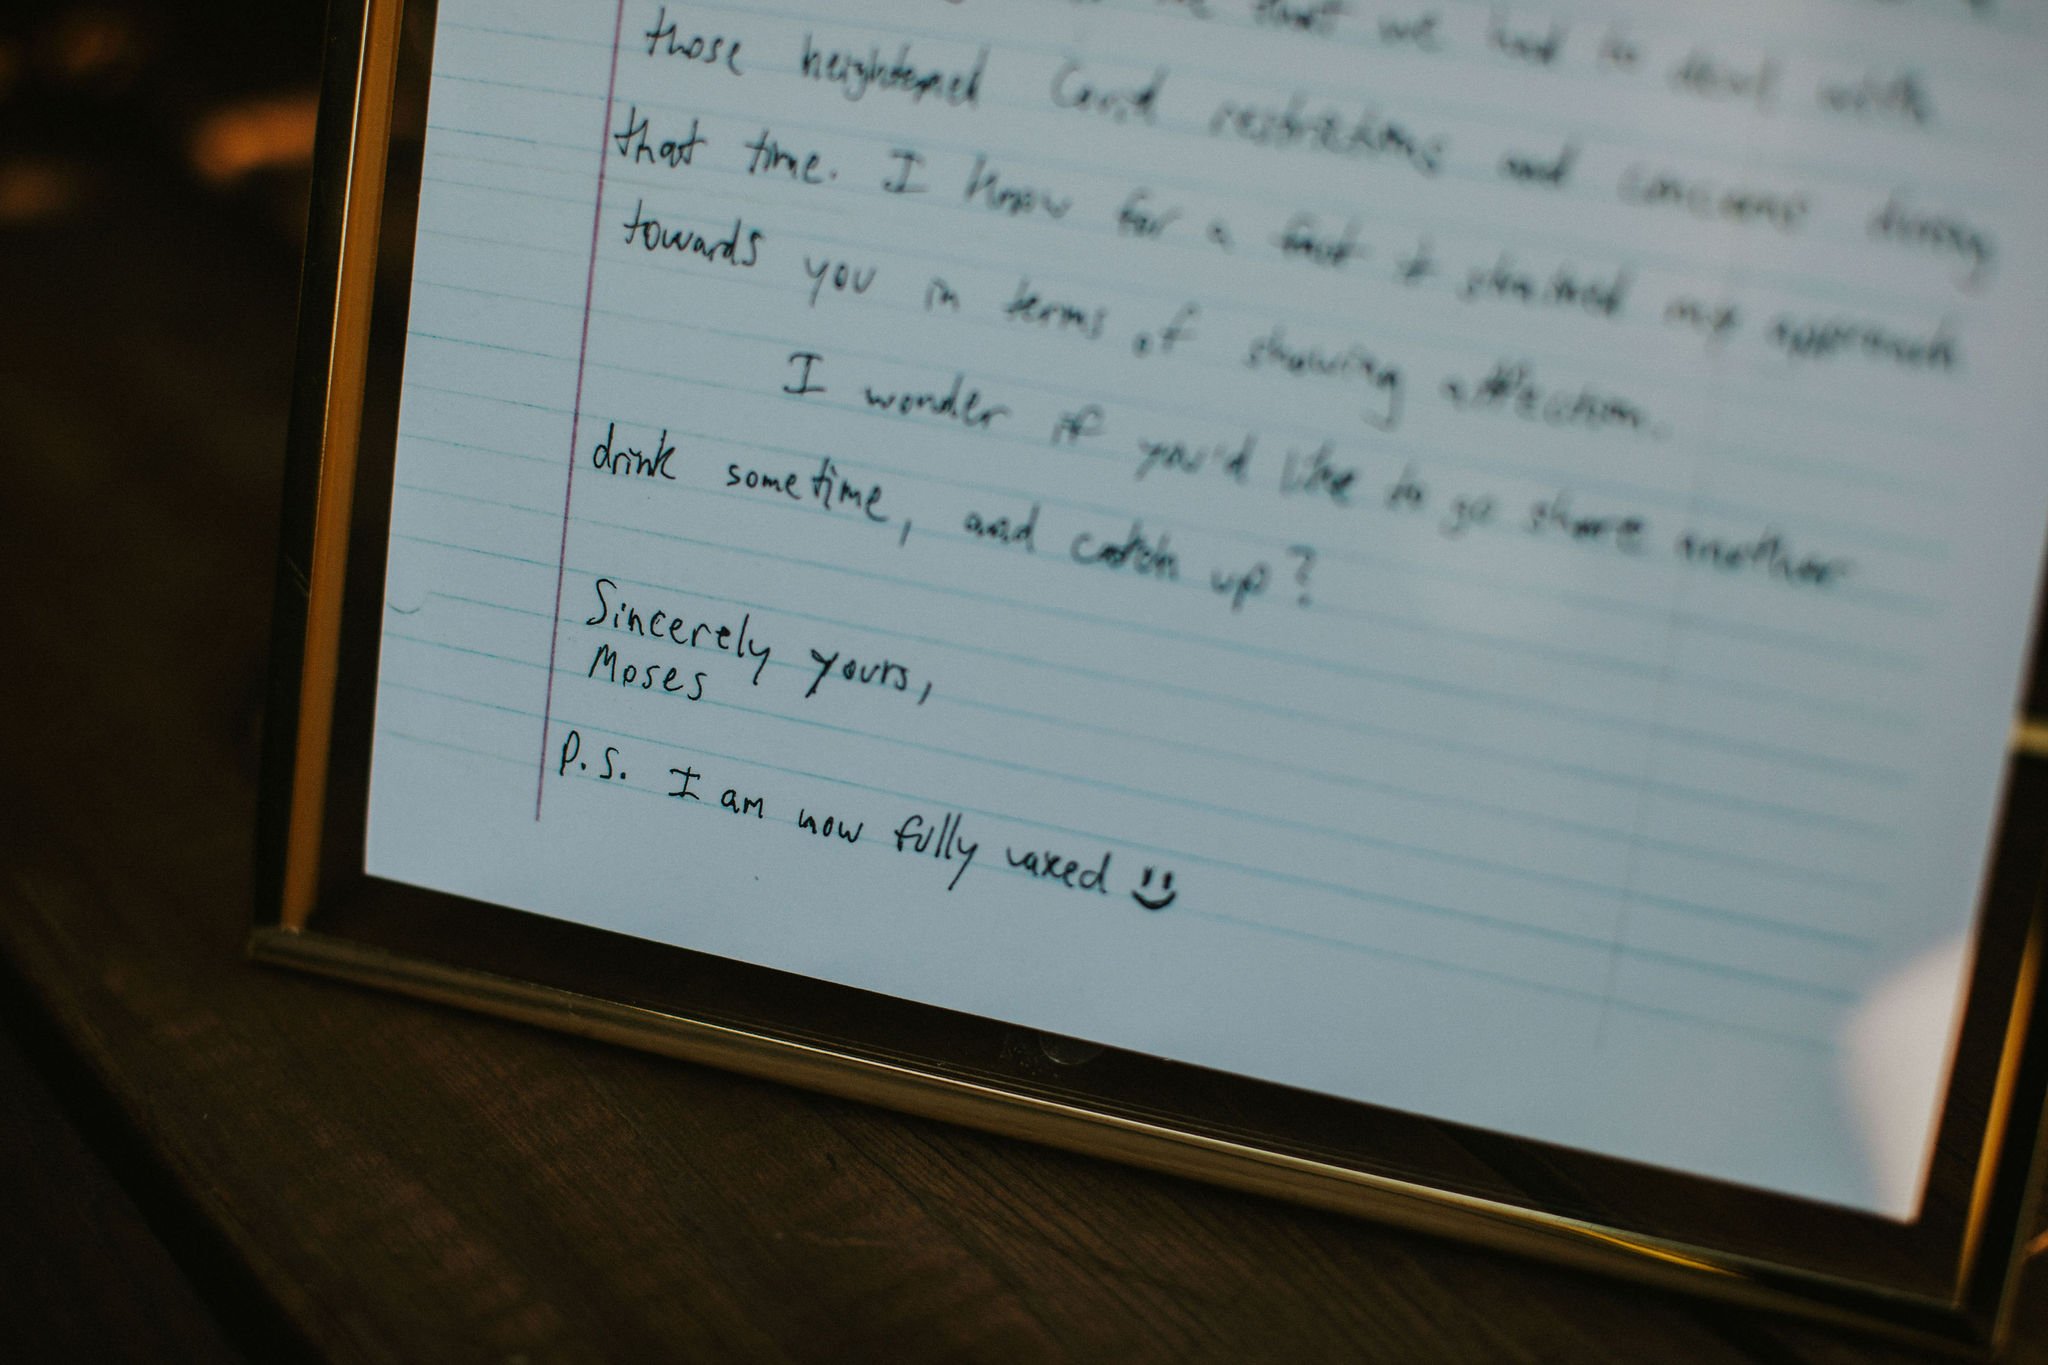 that we had to deal with
those heightened Covid restrictions and concerns during
that time. I know for a fact it strained my approach
towards you in terms of showing affection.
I wonder if you'd like to go share another
drink sometime, and catch up?
Sincerely yours,
Moses
P.S. I am now fully vaxed